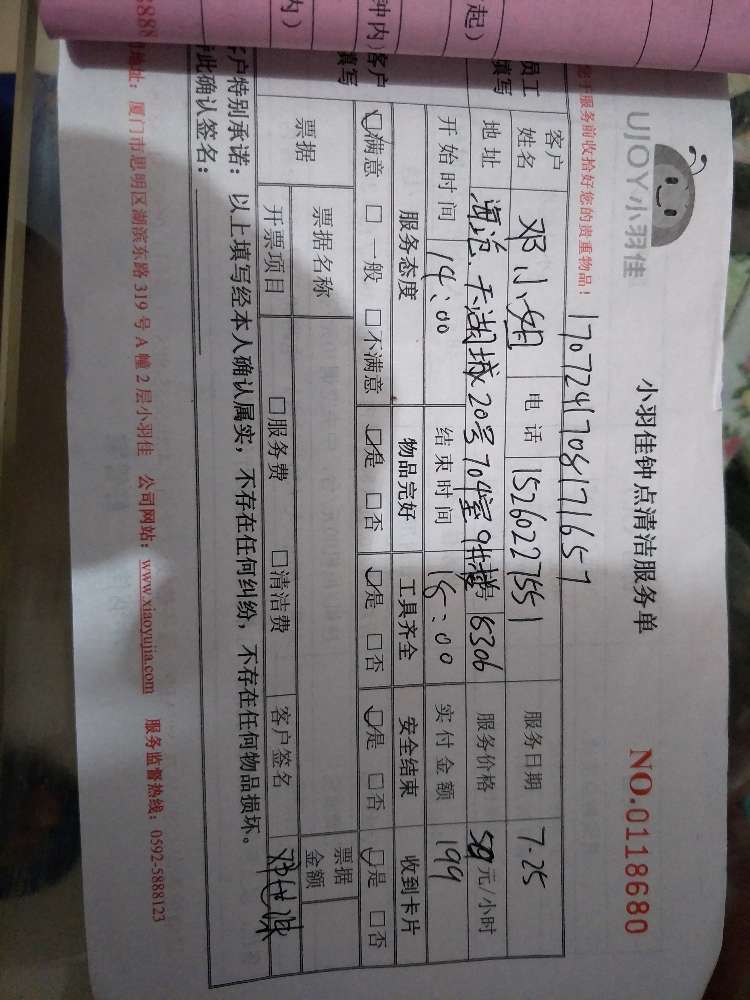 UJOY小羽佳
小羽佳钟点清洁服务单
NO.0118680
于服务前收拾好您的贵重物品!
1707241708171657
员工填写
客户姓名 邓小姐 电话 15260227551 服务日期 7.25
地址 海沧天湖城20号704室 8306 服务价格 元/小时
开始时间 14:00 结束时间 18:00 实付金额 199
客户填写
服务态度 物品完好 工具齐全 安全结束 收到卡片
满意 □一般 □不满意 是 □否 是 □否 是 □否 是 □否
票据 票据名称 票据金额
开票项目 □服务费 □清洁费 客户签名
户特别承诺：以上填写经本人确认属实，不存在任何纠纷，不存在任何物品损坏。
此确认签名：
地址：厦门市思明区湖滨东路319号A幢2层小羽佳 公司网站：www.xiaoyujia.com 服务监督热线：0592-5888123
起)
钟内)
内)